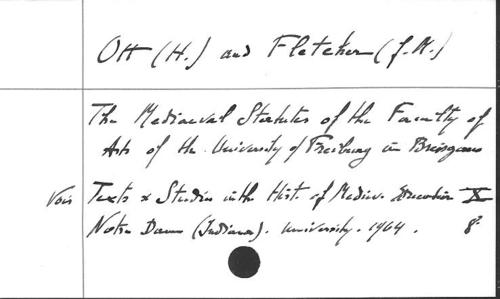 Ott (H.) and Fletcher (J. M.)
The Mediaeval Statutes of the Faculty of
Arts of the University of Freiburg im Breisgau
Vois Texts & Studies in the Hist. of Mediev. Education X
Notre Dame (Indiana). University. 1964. 8°